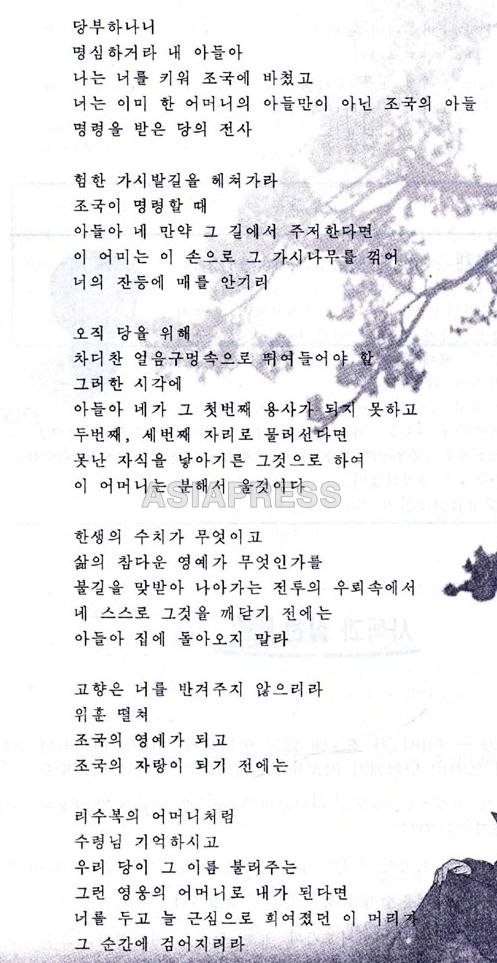 당부하나니
명심하거라 내 아들아
나는 너를 키워 조국에 바쳤고
너는 이미 한 어머니의 아들만이 아닌 조국의 아들
명령을 받은 당의 전사
험한 가시밭길을 헤쳐가라
조국이 명령할 때
아들아 네 만약 그 길에서 주저한다면
이 어미는 이 손으로 그 가시나무를 꺾어
너의 잔등에 매를 안기리
오직 당을 위해
차디찬 얼음구멍속으로 뛰여들어야 할
그러한 시각에
아들아 네가 그 첫번째 용사가 되지 못하고
두번째, 세번째 자리로 물러선다면
못난 자식을 낳아기른 그것으로 하여
이 어머니는 분해서 울것이다
ASIAPRESS
한생의 수치가 무엇이고
삶의 참다운 영예가 무엇인가를
불길을 맞받아 나아가는 전투의 우뢰속에서
네 스스로 그것을 깨닫기 전에는
아들아 집에 돌아오지 말라
고향은 너를 반겨주지 않으리라
위훈 떨쳐
조국의 영예가 되고
조국의 자랑이 되기 전에는
리수복의 어머니처럼
수령님 기억하시고
우리 당이 그 이름 불러주는
그런 영웅의 어머니로 내가 된다면
너를 두고 늘 근심으로 희여졌던 이 머리가
그 순간에 검어지리라